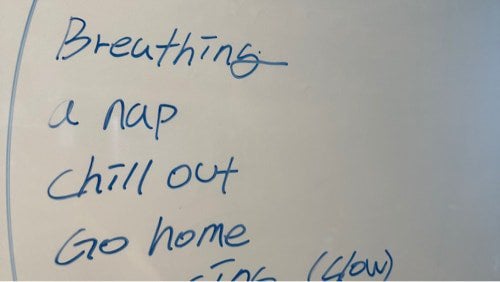 Breathing
a nap
chill out
Go home
(slow)